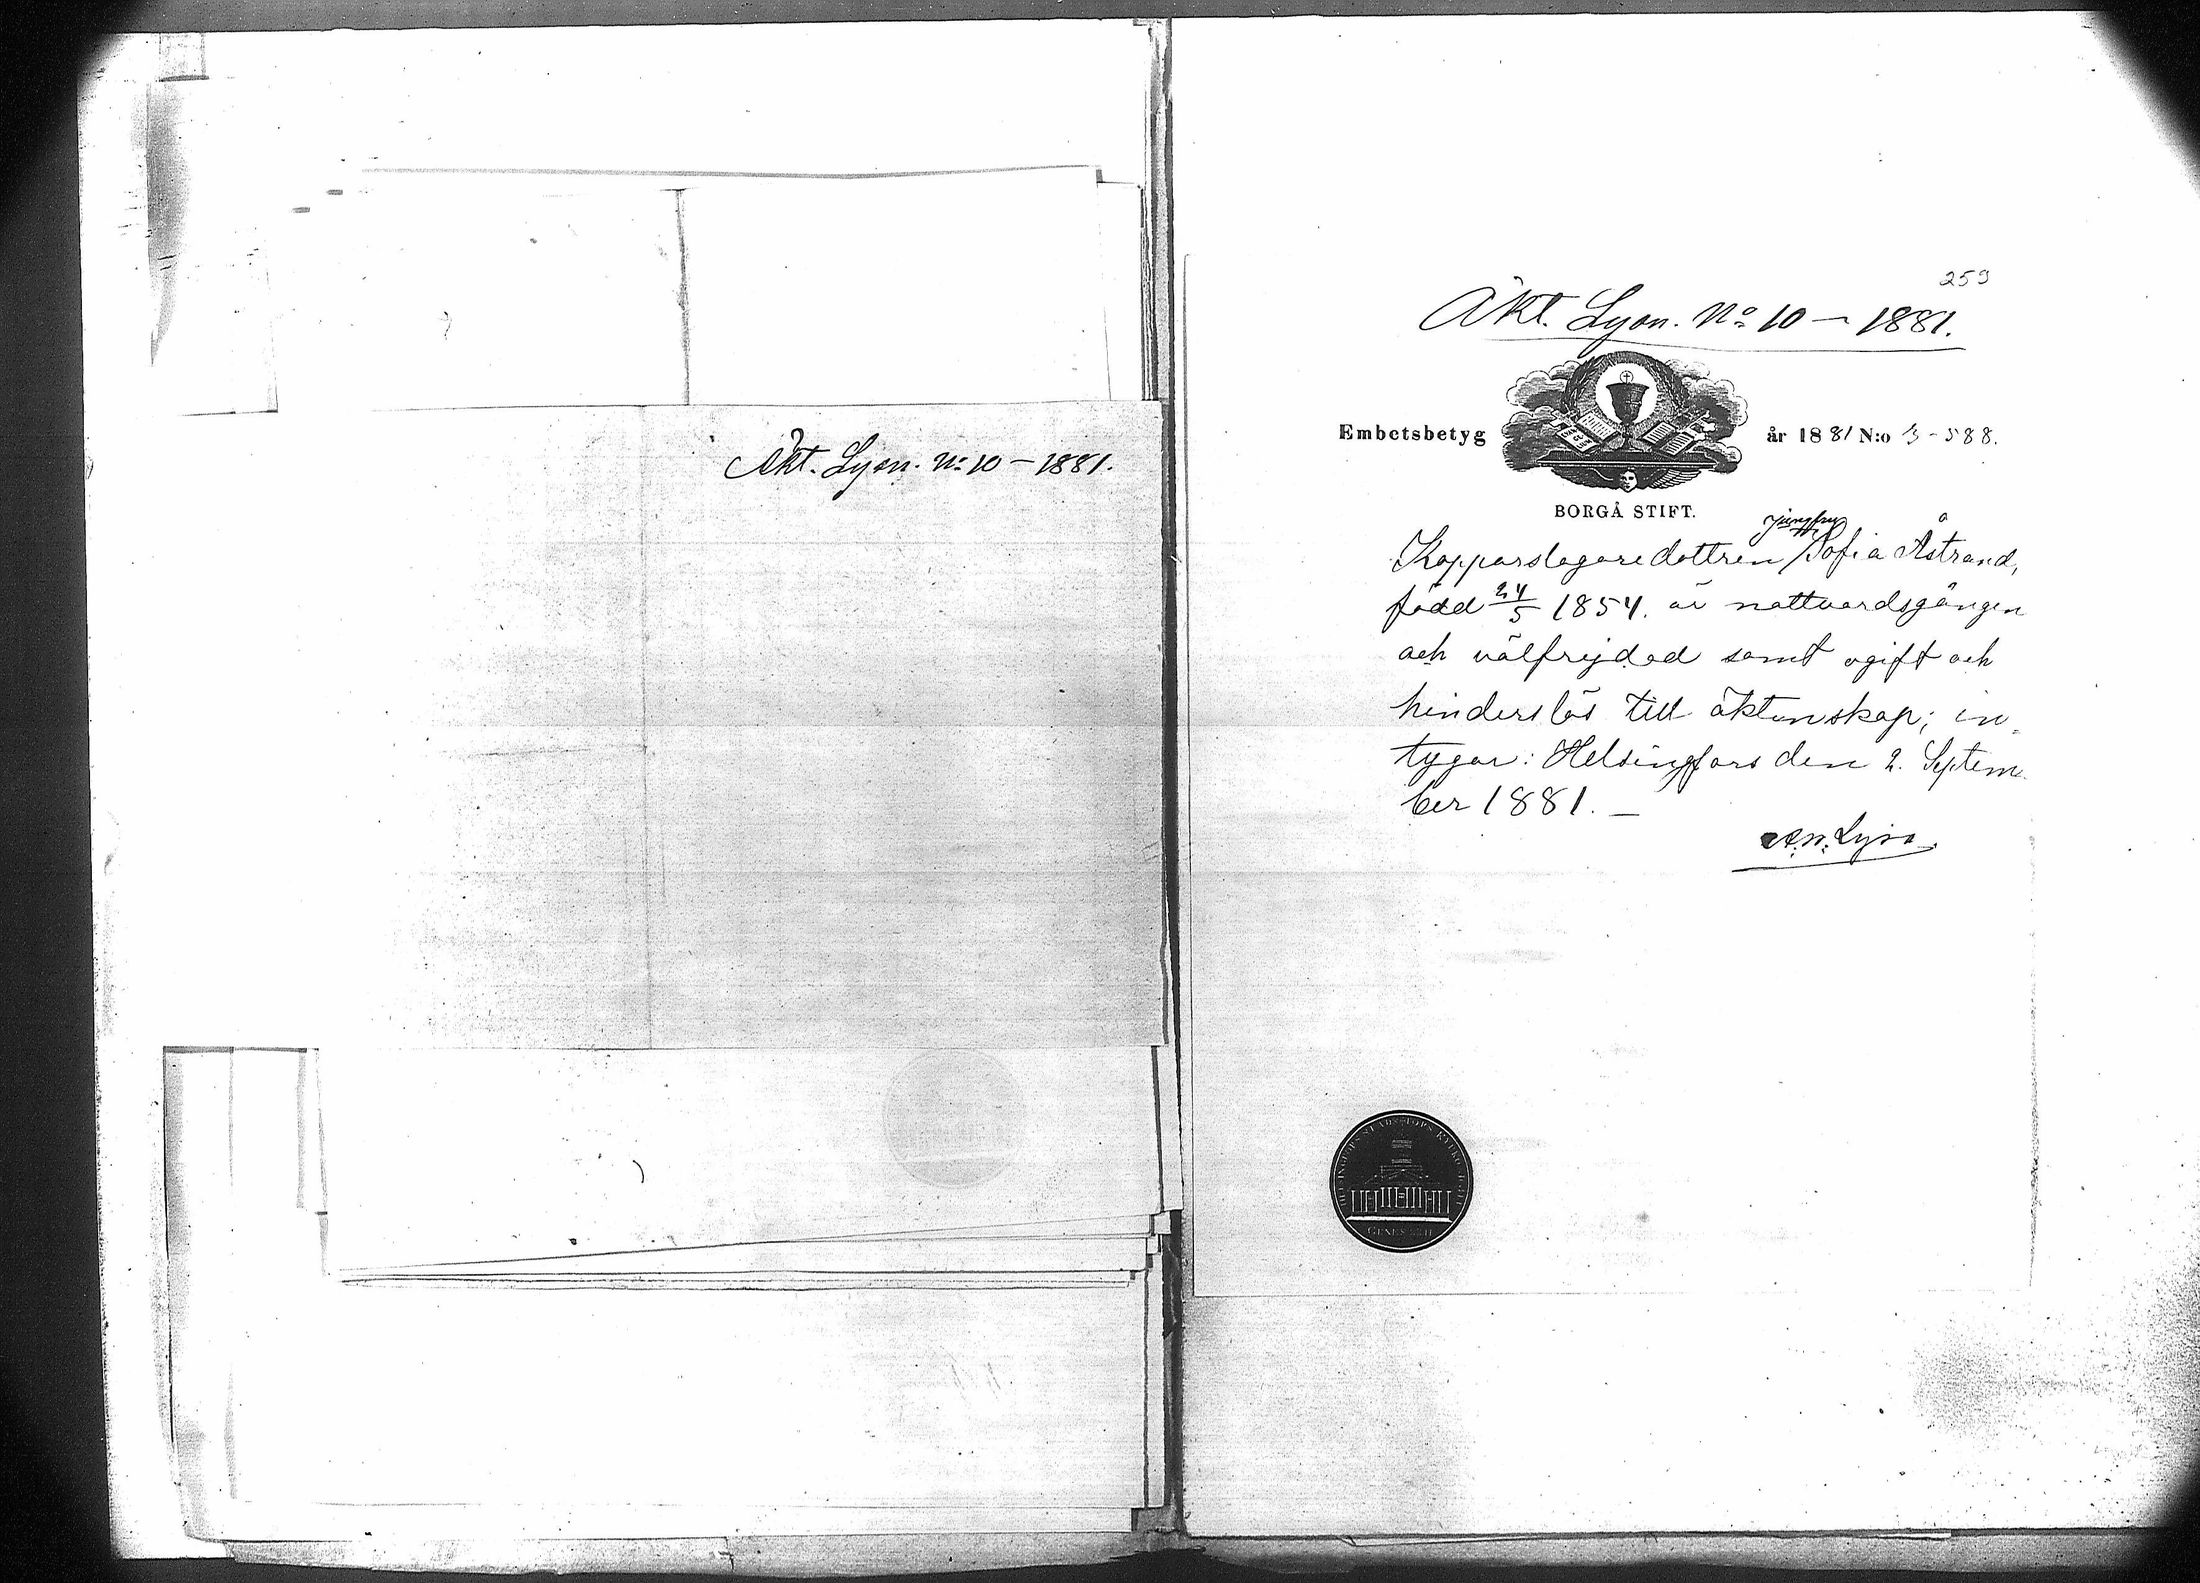 Äkt. Lysn. No 10 – 1881.
259
Äkt. Lysn. No 10 – 1881.
Embetsbetyg år 1881 N:o 3-588.
BORGÅ STIFT.
jungfru
Kopparslagaredottren Sofia Åstrand,
född 24/5 1854. är nattvardsgången
och välfrejdad samt ogift och
hinderslös till äktenskap; in-
tygar: Helsingfors den 2. Septem-
ber 1881. –